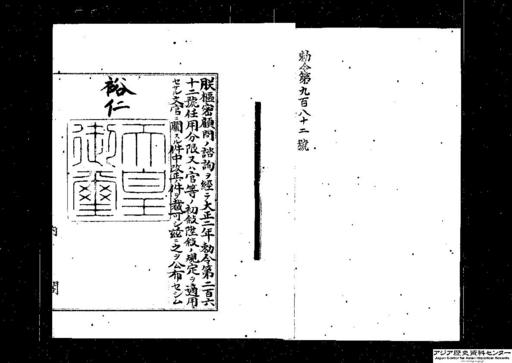 勅令第九百八十二號
朕樞密顧問ノ諮詢ヲ經テ大正二年勅令第二百六
十二號任用分限又ハ官等ノ初敍陞敍ノ規定ヲ適用
セサル文官ニ關スル件中改正ノ件ヲ裁可シ茲ニ之ヲ公布セシム
裕仁
天皇
御璽
内閣
アジア歴史資料センター
Japan Center for Asian Historical Records